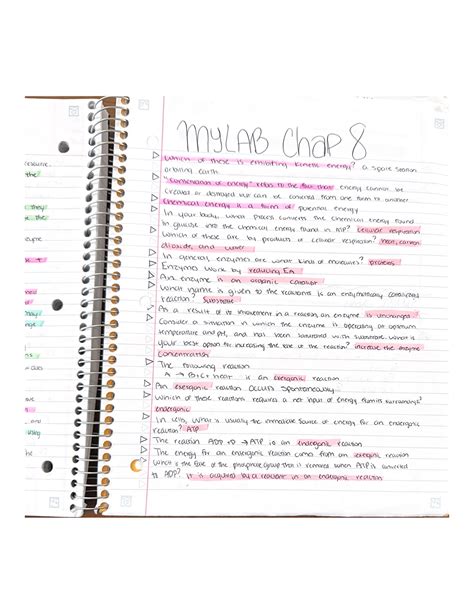 MYLAB Chap 8
resource.
the
they
enzyme
may
using
Which of these is exhibiting kinetic energy? a space station
orbiting earth
"Conservation of energy" refers to the fact that energy cannot be
created or destroyed but can be converted from one form to another
Chemical energy is a form of potential energy
In your body, what process converts the chemical energy found
in glucose into the chemical energy found in ATP? Cellular respiration
Which of these are by products of cellular respiration? heat, carbon
dioxide, and water
In general enzymes are what kinds of molecules? proteins
Enzymes work by reducing EA
An enzyme is an organic catalyst
What name is given to the reactants in an enzymatically catalyzed
reaction? Substrate
As a result of its involvement in a reaction, an enzyme is unchanged
Consider a situation in which the enzyme is operating at optimum
temperature and pH, and has been saturated with substrate. What is
your best option for increasing the rate of the reaction? increase the enzyme
concentration
The following reaction
A → B+C+ heat is an exergonic reaction
An exergonic reaction occurs spontaneously
Which of these reactions requires a net input of energy from its surroundings?
endergonic
In cells, what is usually the immediate source of energy for an endergonic
reaction? ATP
The reaction ADP + P → ATP is an endergonic reaction
The energy for an endergonic reaction comes from an exergonic reaction
What is the fate of the phosphate group that is removed when ATP is converted
to ADP? It is acquired by a reactant in an endergonic reaction